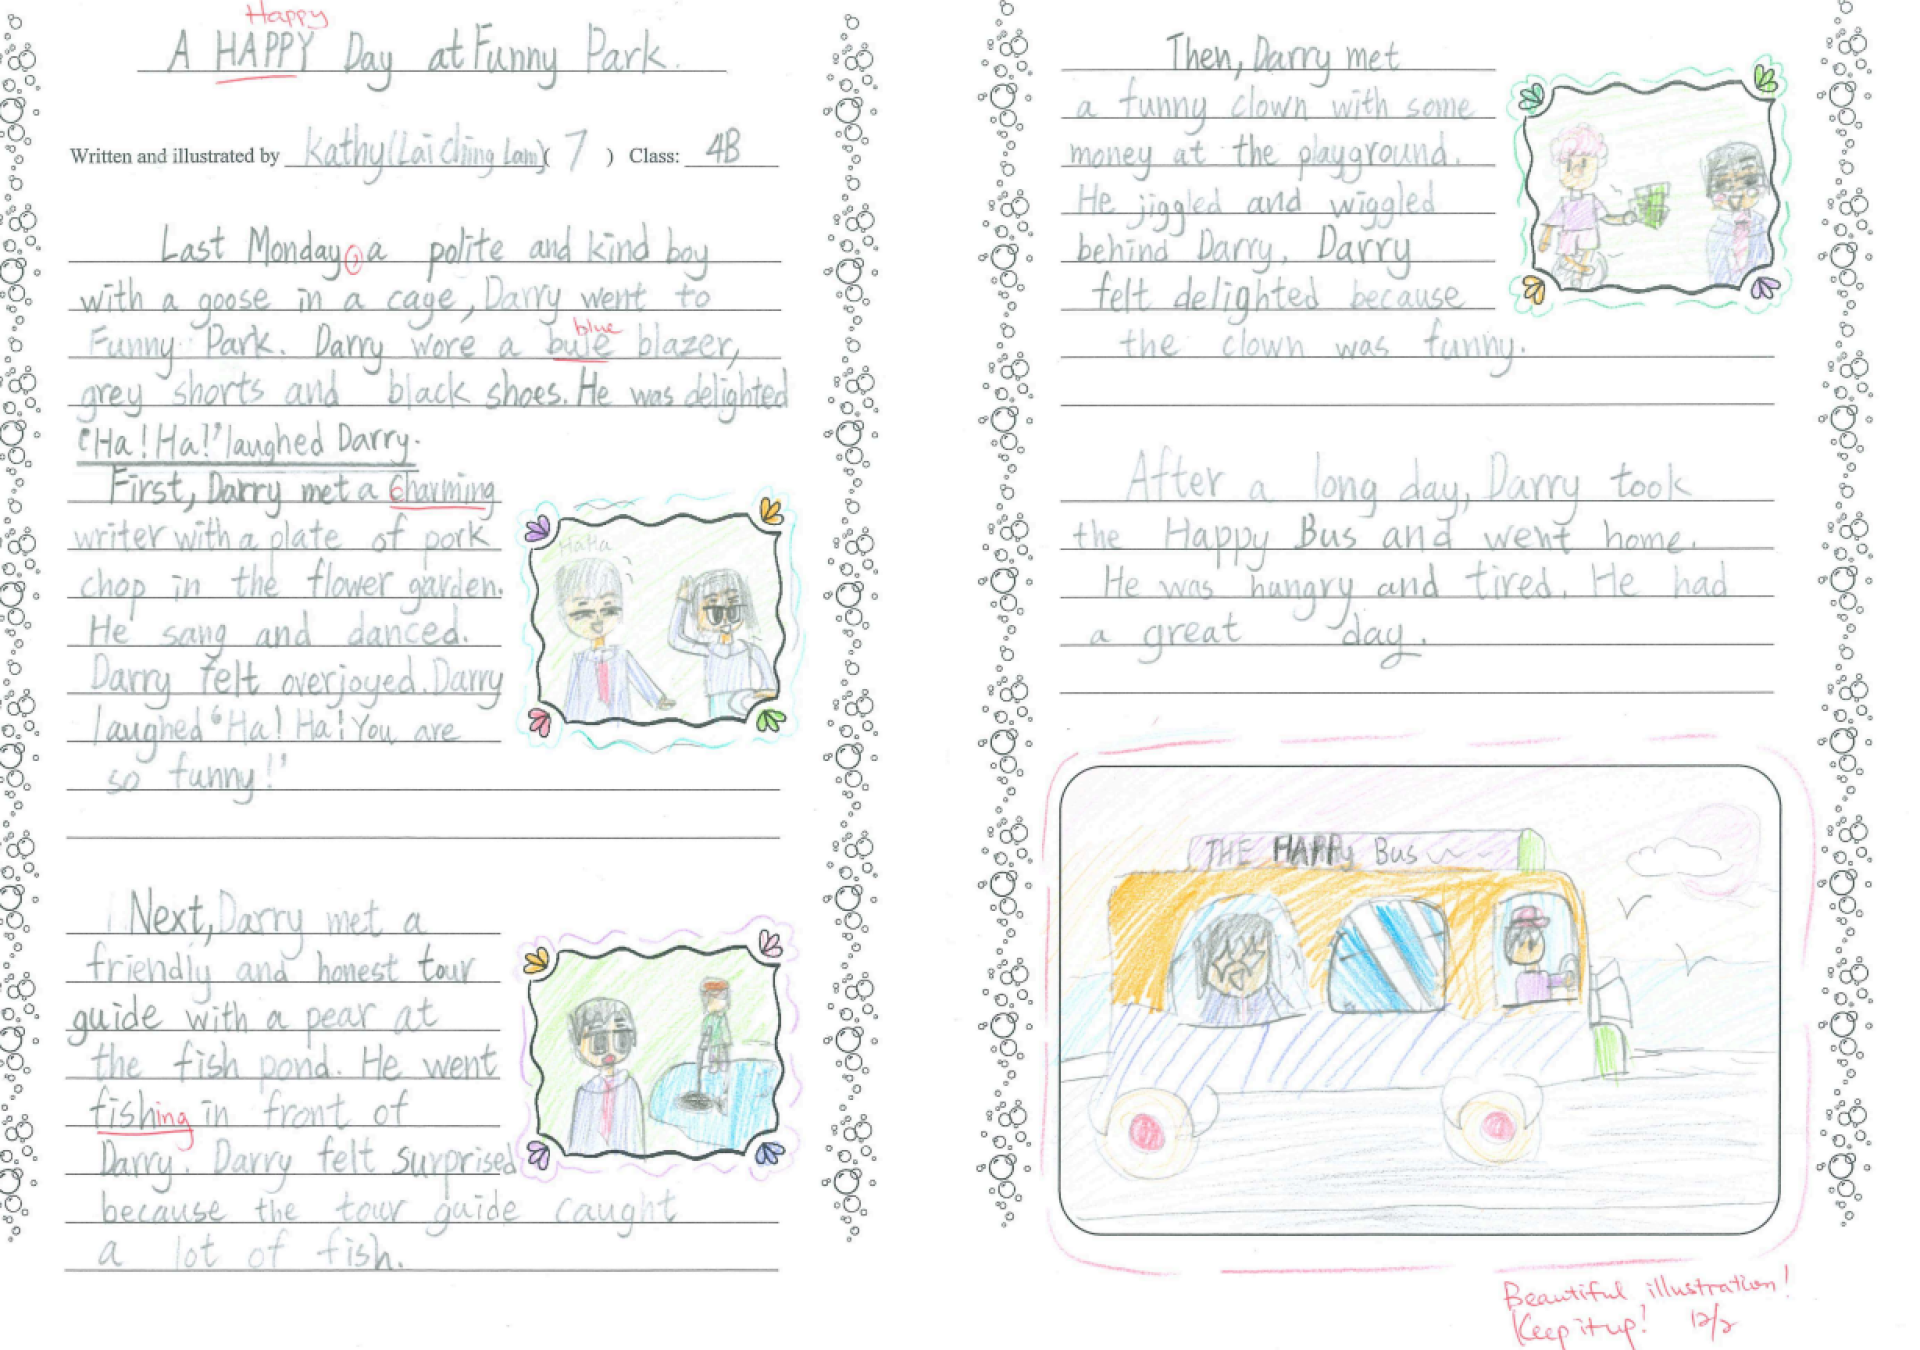 Happy
A HAPPY Day at Funny Park.
Written and illustrated by Kathy (Lai Ching Lam) ( 7 ) Class: 4B
Last Monday, a polite and kind boy
with a goose in a cage, Darry went to
blue
Funny Park. Darry wore a bule blazer,
grey shorts and black shoes. He was delighted
'Ha! Ha!' laughed Darry.
First, Darry met a charming
writer with a plate of pork
chop in the flower garden.
He sang and danced.
Darry felt overjoyed. Darry
laughed 'Ha! Ha! You are
so funny!'
HaHa
Next, Darry met a
friendly and honest tour
guide with a pear at
the fish pond. He went
fishing in front of
Darry. Darry felt surprised
because the tour guide caught
a lot of fish.
Then, Darry met
a funny clown with some
money at the playground.
He jiggled and wiggled
behind Darry, Darry
felt delighted because
the clown was funny.
After a long day, Darry took
the Happy Bus and went home.
He was hungry and tired. He had
a great day.
THE HAPPy Bus
Beautiful illustration!
Keep it up! 12/2